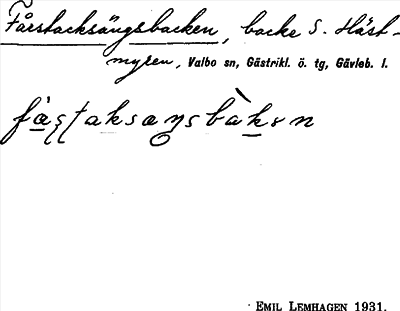 Fårstacksängsbacken, backe S. Häst-
myren, Valbo sn, Gästrikl. ö. tg, Gävleb. l.
EMIL LEMHAGEN 1931.